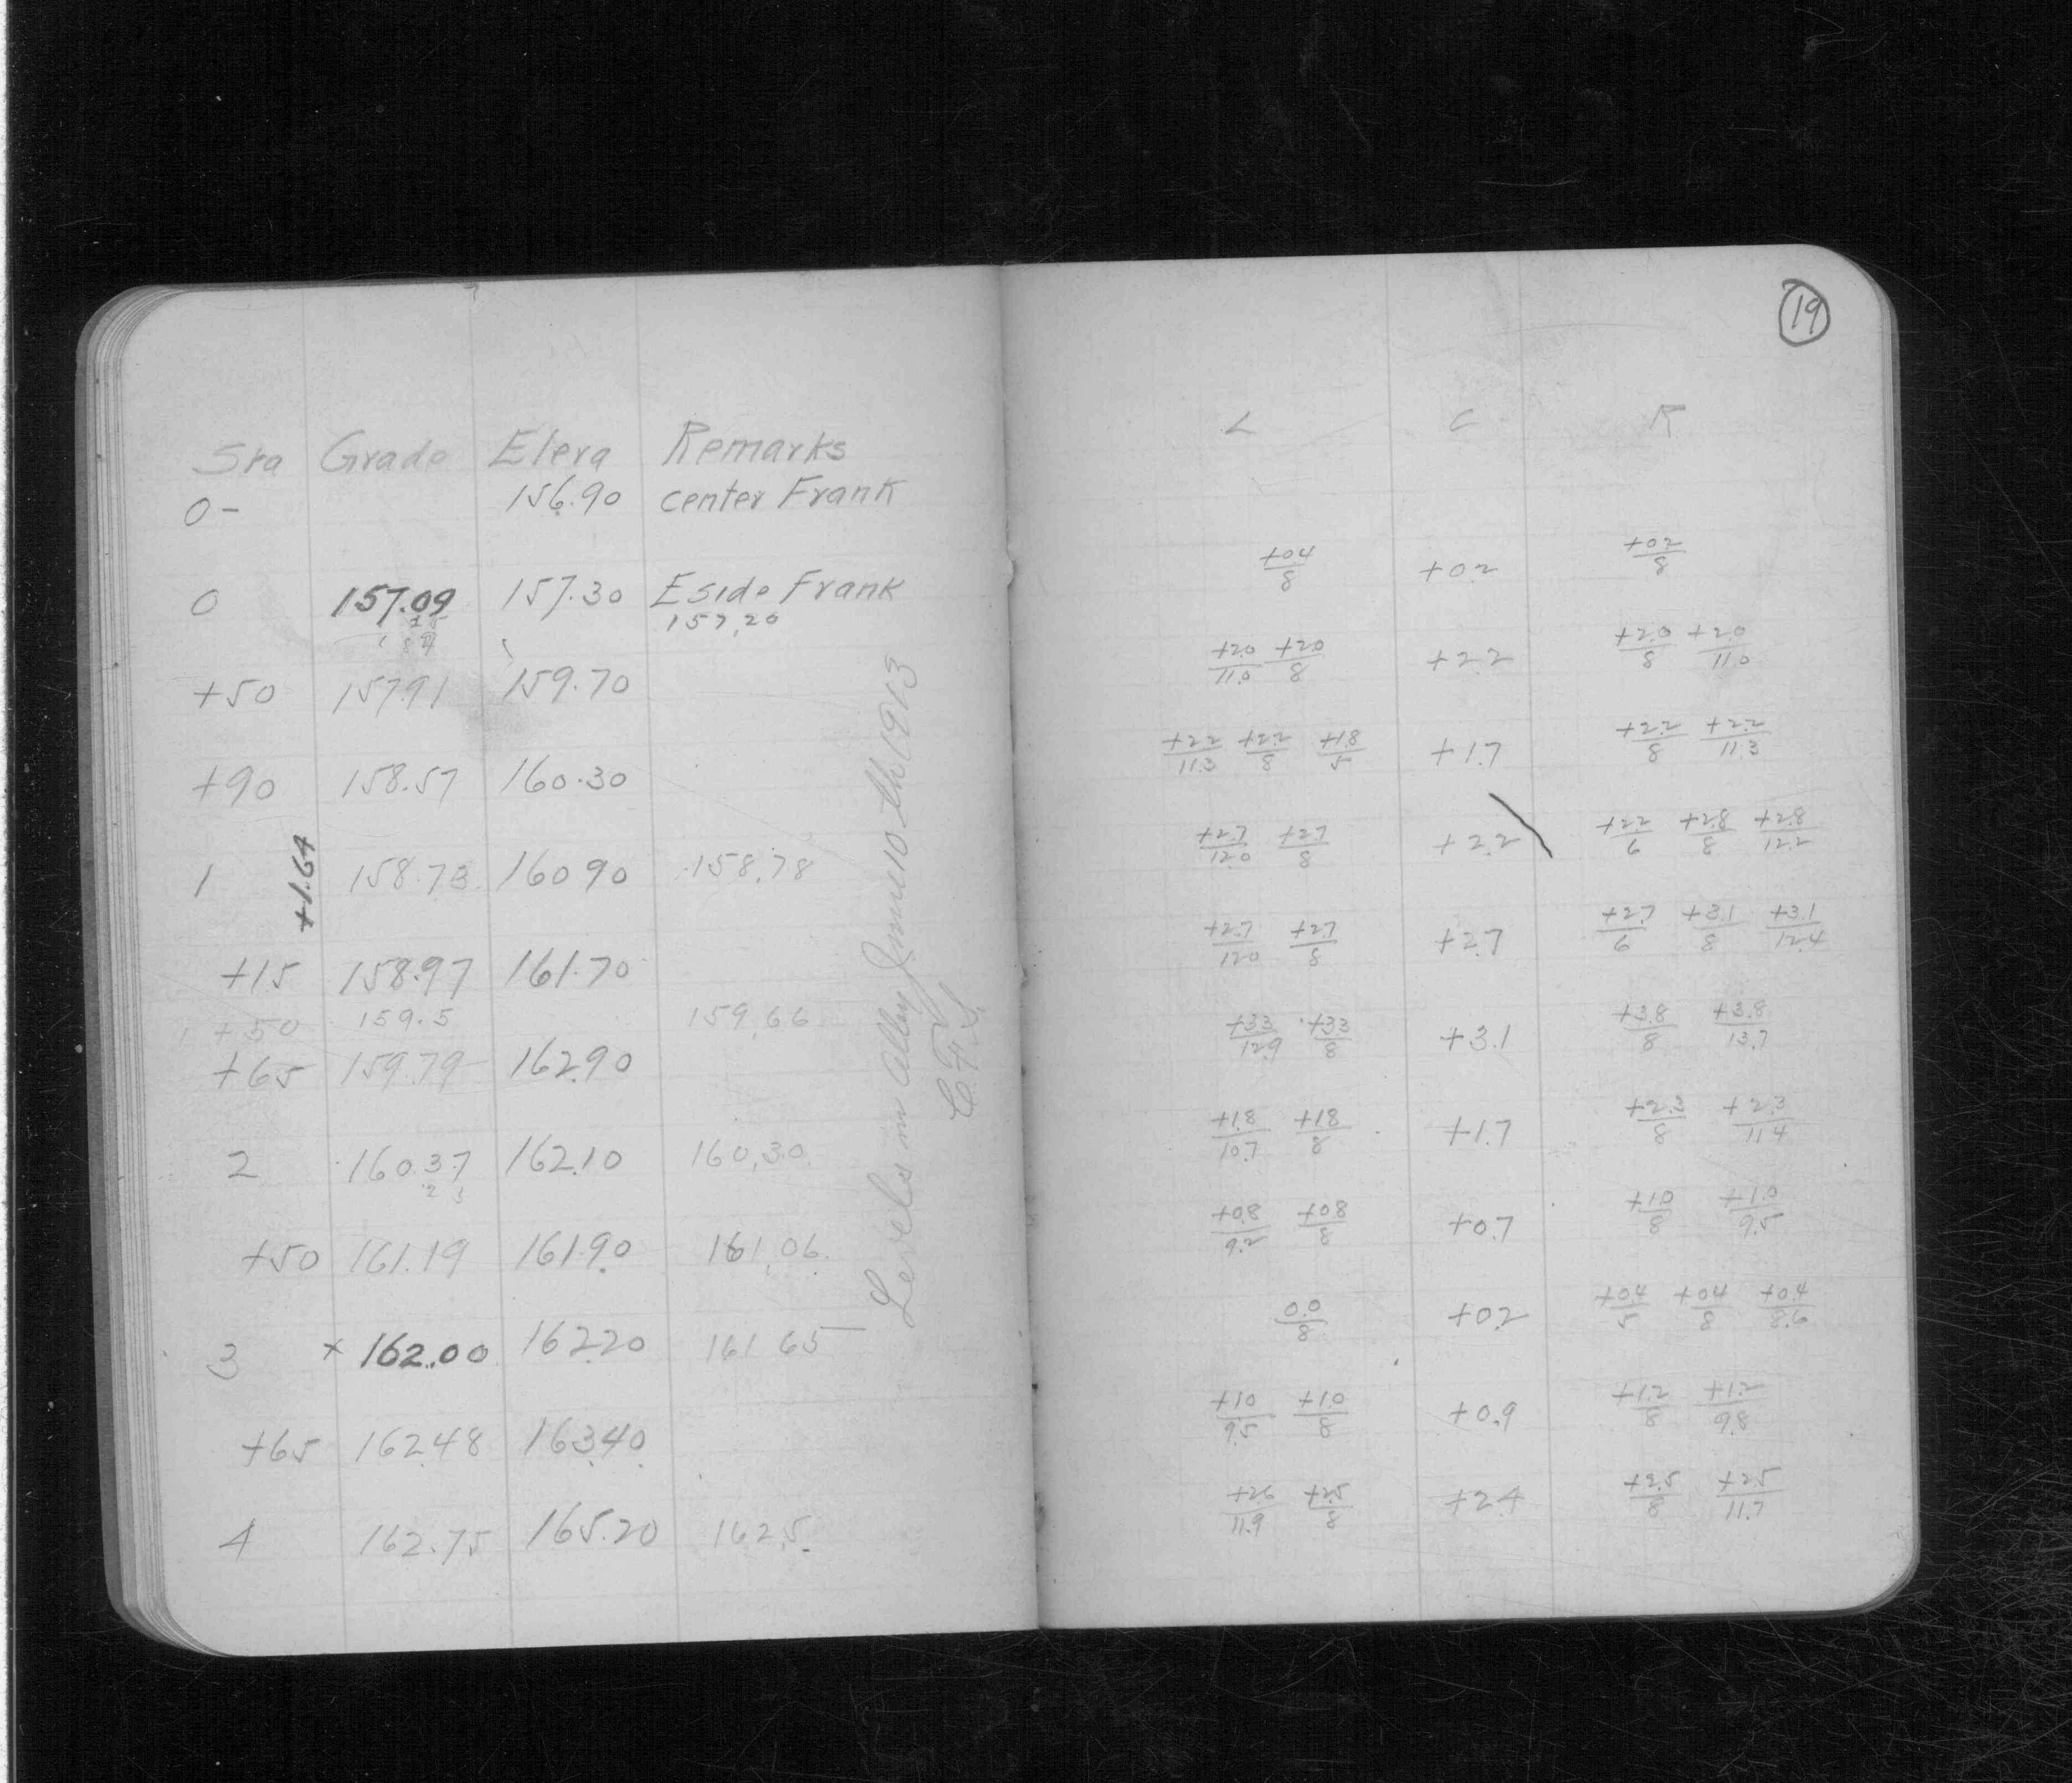 Sta Grade Eleva Remarks
0- 156.90 center Frank
0 157.09 157.30 E side Frank
157.20
+50 157.91 159.70
+90 158.57 160.30
1 158.73 160 90 158.78
+1.64
+15 158.97 161.70
1 +50 159.5 159.66
+65 159.79 162.90
2 160.37 162.10 160.30
+50 161.19 161.90 161.06
3 x 162.00 162.20 161 65
+65 162.48 163.40
4 162.75 165.20 162.5
Levels in Alley June 10 th 1913
C.F.S.
19
L C R
+04/8 +02 +02/8
+20/11.0 +20/8 +2.2 +2.0/8 +2.0/11.0
+22/11.3 +2.2/8 +1.8/5 +1.7 +2.2/8 +2.2/11.3
+2.7/12.0 +2.7/8 +2.2 +22/6 +2.8/8 +2.8/12.2
+2.7/120 +27/8 +2.7 +27/6 +3.1/8 +3.1/12.4
+33/12.9 +33/8 +3.1 +3.8/8 +3.8/13.7
+1.8/10.7 +18/8 +1.7 +2.3/8 +2.3/11 4
+0.8/9.2 +0.8/8 +0.7 +1.0/8 +1.0/9.5
0.0/8 +02 +04/5 +04/8 +0.4/8.6
+10/9.5 +1.0/8 +0.9 +1.2/8 +1.2/9.8
+26/11.9 +2.5/8 +2.4 +2.5/8 +2.5/11.7